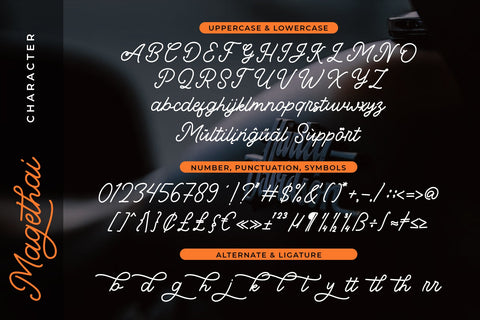 CHARACTER
Magethai
UPPERCASE & LOWERCASE
ABCDEFGHIJKLMNO
PQRSTUVWXYZ
abcdefghijklmnopqrstuvwxyz
Multilingual Support
NUMBER, PUNCTUATION, SYMBOLS
0123456789 '!?"#$%&()*+,-./:;<=>@
ALTERNATE & LIGATURE
b d g h j k l t y tt tl th rr